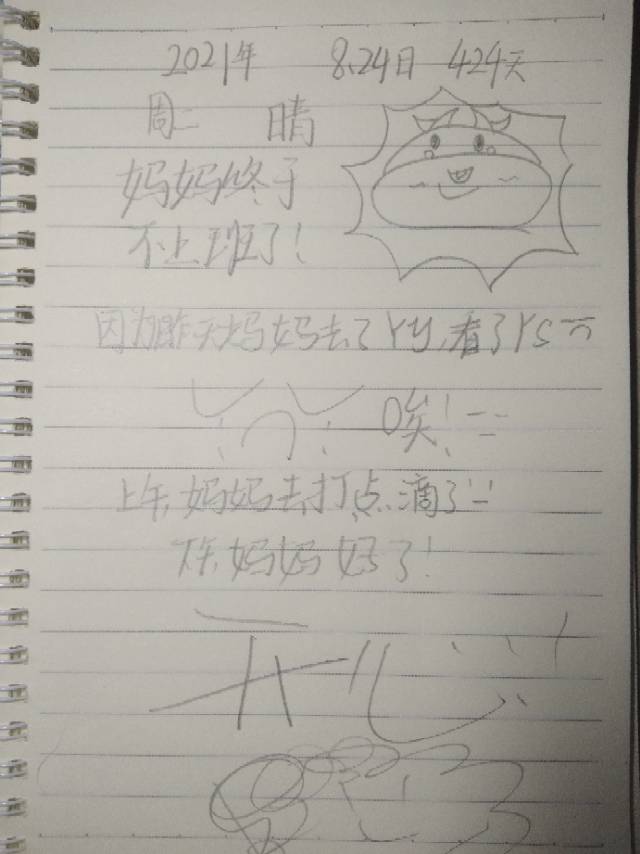 2021年 8.24日 424天
周二 晴
妈妈终于
不上班了!
因为昨天妈妈去了YY,看了YS
唉!
上午,妈妈去打点滴了
下午,妈妈好了!
开心